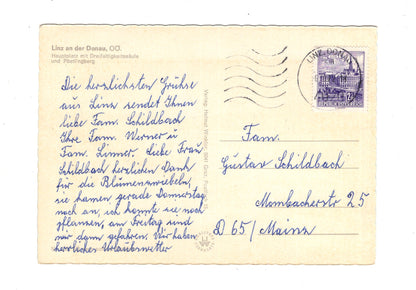 Linz an der Donau, OÖ.
Hauptplatz mit Dreifaltigkeitssäule
und Pöstlingberg
LINZ DONAU
Die herzlichsten Grüße
aus Linz sendet Ihnen
liebe Fam. Schildbach
Ihre Fam. Werner u
Fam. Linner. Liebe Frau
Schildbach herzlichen Dank
für die Blumenzwiebeln,
sie kamen gerade Donnerstag
noch an, ich konnte sie noch
pflanzen, am Freitag sind
wir dann gefahren. Wir haben
herrliches Urlaubswetter
Verlag
Fam.
Gustav Schildbach
Mombacherstr 25
D 65/ Mainz